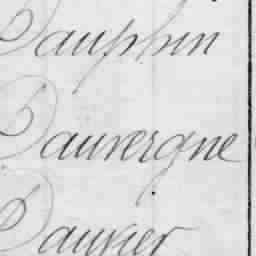 Dauphin
Dauvergne
Dauvier